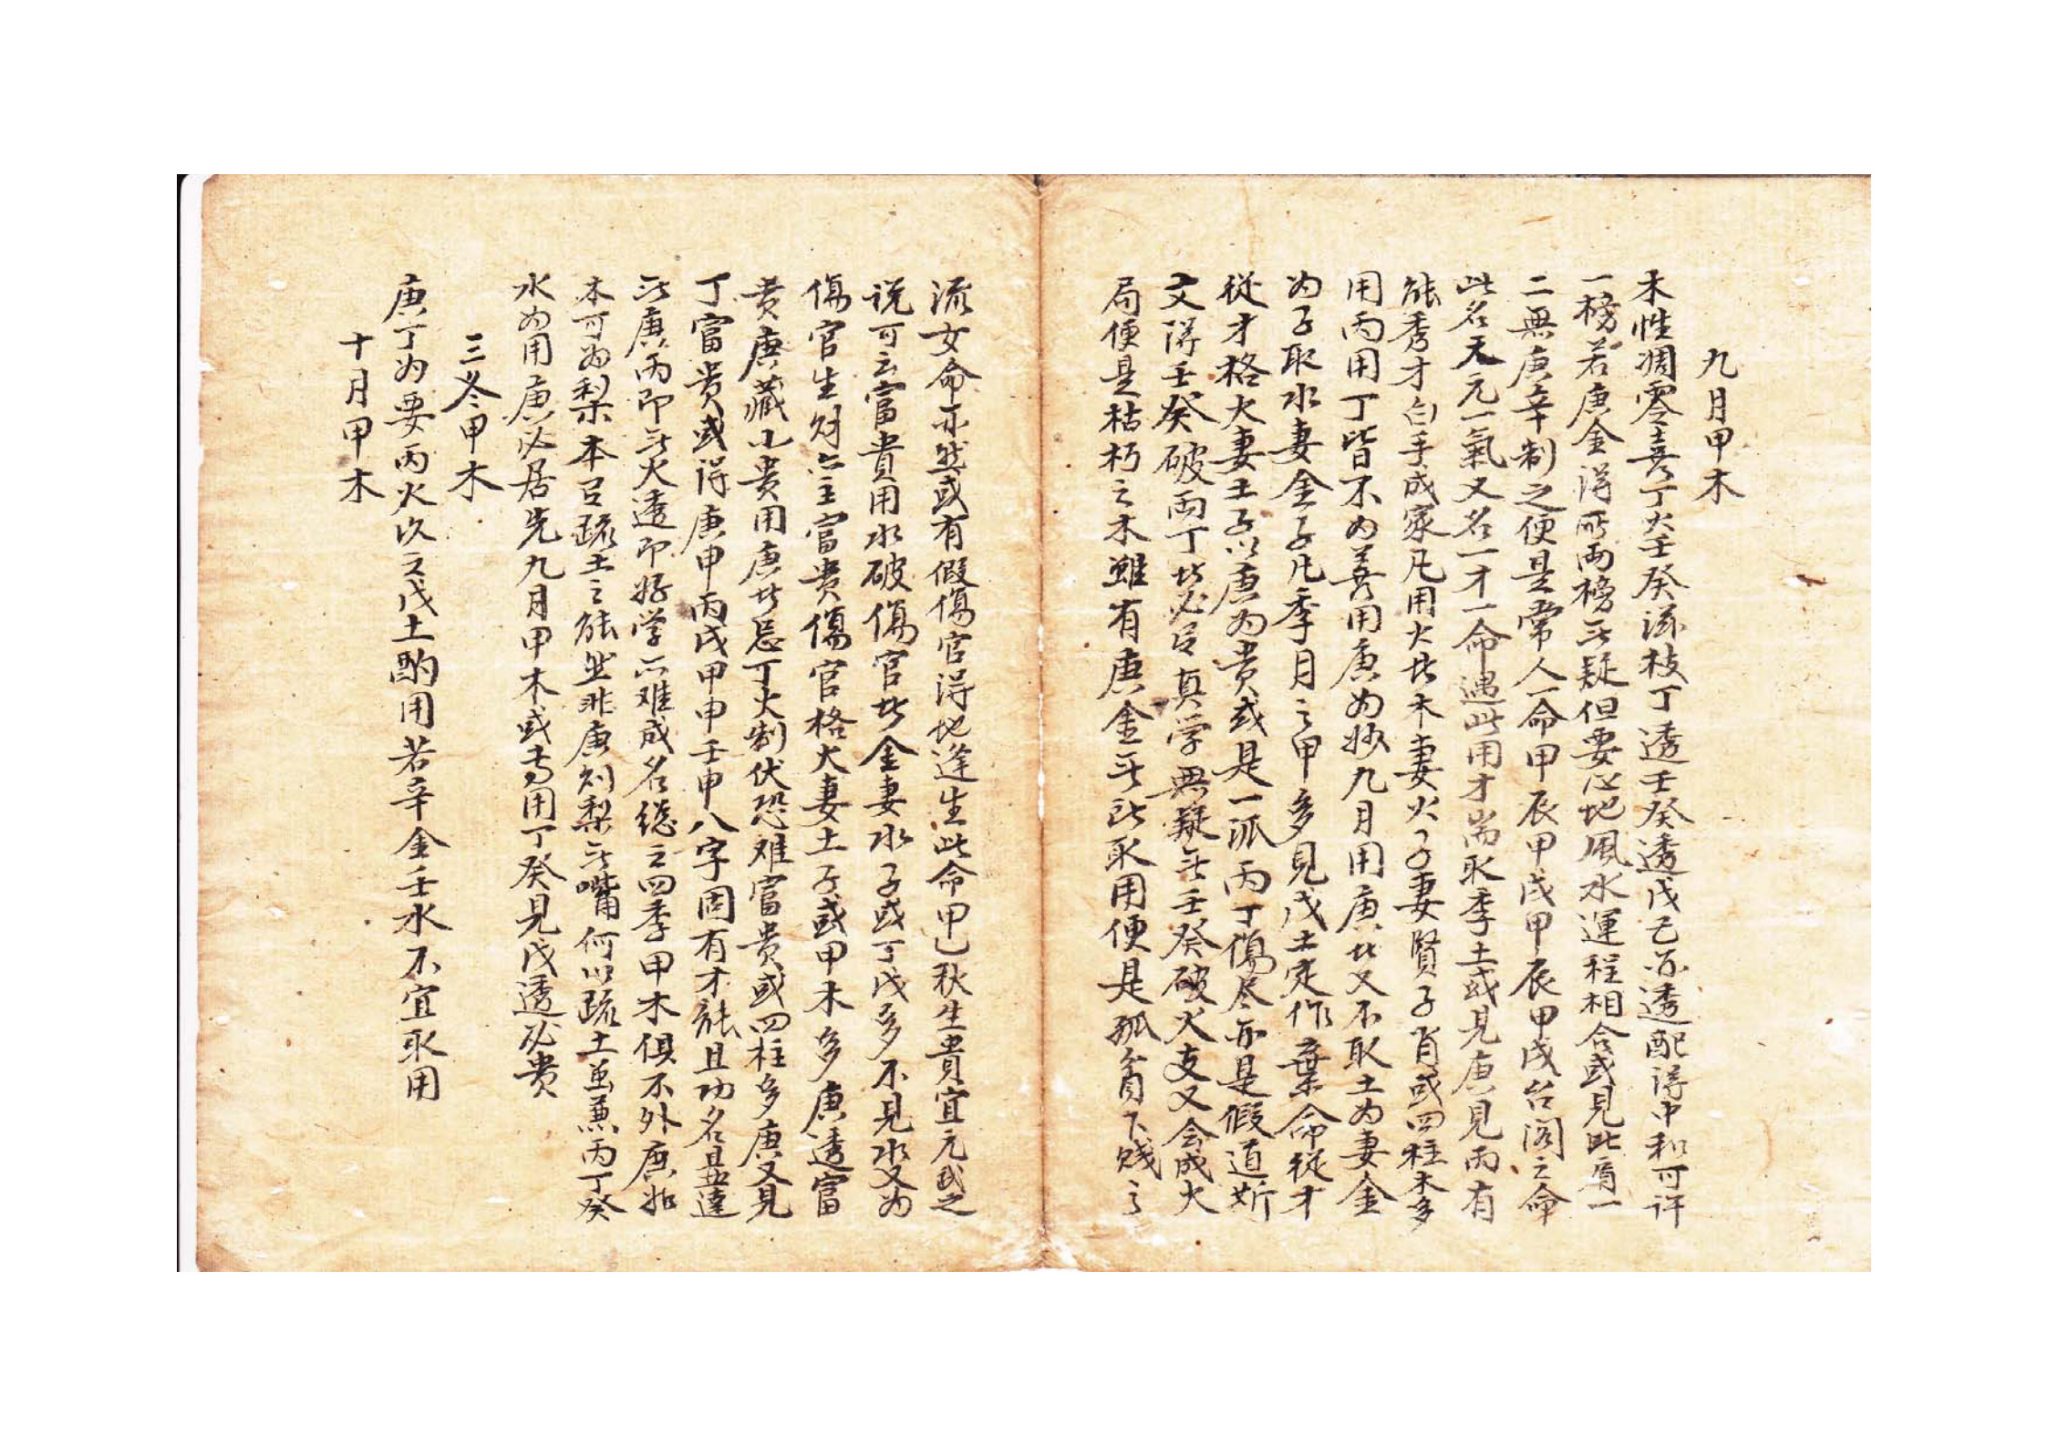 九月甲木
木性凋零喜丁火壬癸滋枝丁透壬癸透戊己亦透配得中和可许
一榜若庚金得所两榜无疑但要心地風水運程相合或見比肩一
二無庚辛制之便是常人一命甲辰甲戌甲辰甲戌台阁之命
此名天元一氣又名一才一命遇此用才尚取季土或見庚見丙有
能秀才白手成家凡用火者木妻火子妻賢子肖或四柱木多
用丙用丁皆不为善用庚为妙九月用庚者又不取土为妻金
为子取水妻金子凡季月之甲多見戊土定作棄命從才
從才格火妻土子以庚为贵或是一派丙丁傷尽亦是假道斯
文得壬癸破丙丁者必召真学無疑无壬癸破火支又会成火
局便是枯朽之木雖有庚金无所取用便是孤貧下贱之
流女命亦然或有假傷官得地逢生此命甲乙秋生貴宜元武之
说可云富貴用水破傷官者金妻水子或丁戊多不見水又为
傷官生财亦主富贵傷官格火妻土子或甲木多庚透富
贵庚藏小贵用庚者忌丁火制伏恐难富贵或四柱多庚又見
丁富贵或得庚申丙戌甲申壬申八字固有才能且功名显達
无庚丙即无火透即好学亦难成名總之四季甲木俱不外庚非
木可为梨本召疏土之能然非庚则梨无嘴何以疏土虽兼丙丁癸
水为用庚必居先九月甲木或专用丁癸見戊透必贵
三冬甲木
庚丁为要丙火次之戊土酌用若辛金壬水不宜取用
十月甲木